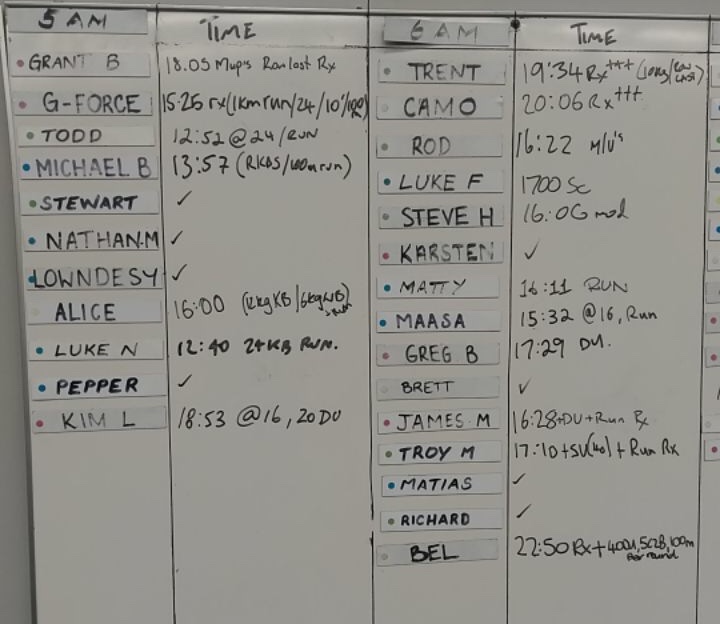 5 AM TIME
GRANT B 18.05 Mup's Run last Rx
G-FORCE 15.25 rx (1km run/24/10'/
TODD 12:52 @ 24/RUN
MICHAEL B 13:57 (RKBS/ run)
STEWART ✓
NATHAN.M ✓
LOWNDESY ✓
ALICE 16:00 (12kgKB/6kgWB)
LUKE N 12:40 24KB RUN.
PEPPER ✓
KIM L 18:53 @16, 20 DU
6 AM TIME
TRENT 19:34 Rx+++
CAMO 20:06 Rx+++
ROD 16:22 M/U's
LUKE F 1700 Sc
STEVE H 16:06 mod
KARSTEN ✓
MATTY 16:11 RUN
MAASA 15:32 @16, Run
GREG B 17:29 DU.
BRETT ✓
JAMES M 16:28+DU+Run Rx
TROY M 17:10+SU(40)+Run Rx
MATIAS ✓
RICHARD ✓
BEL 22:50 Rx+ 100m
Per round